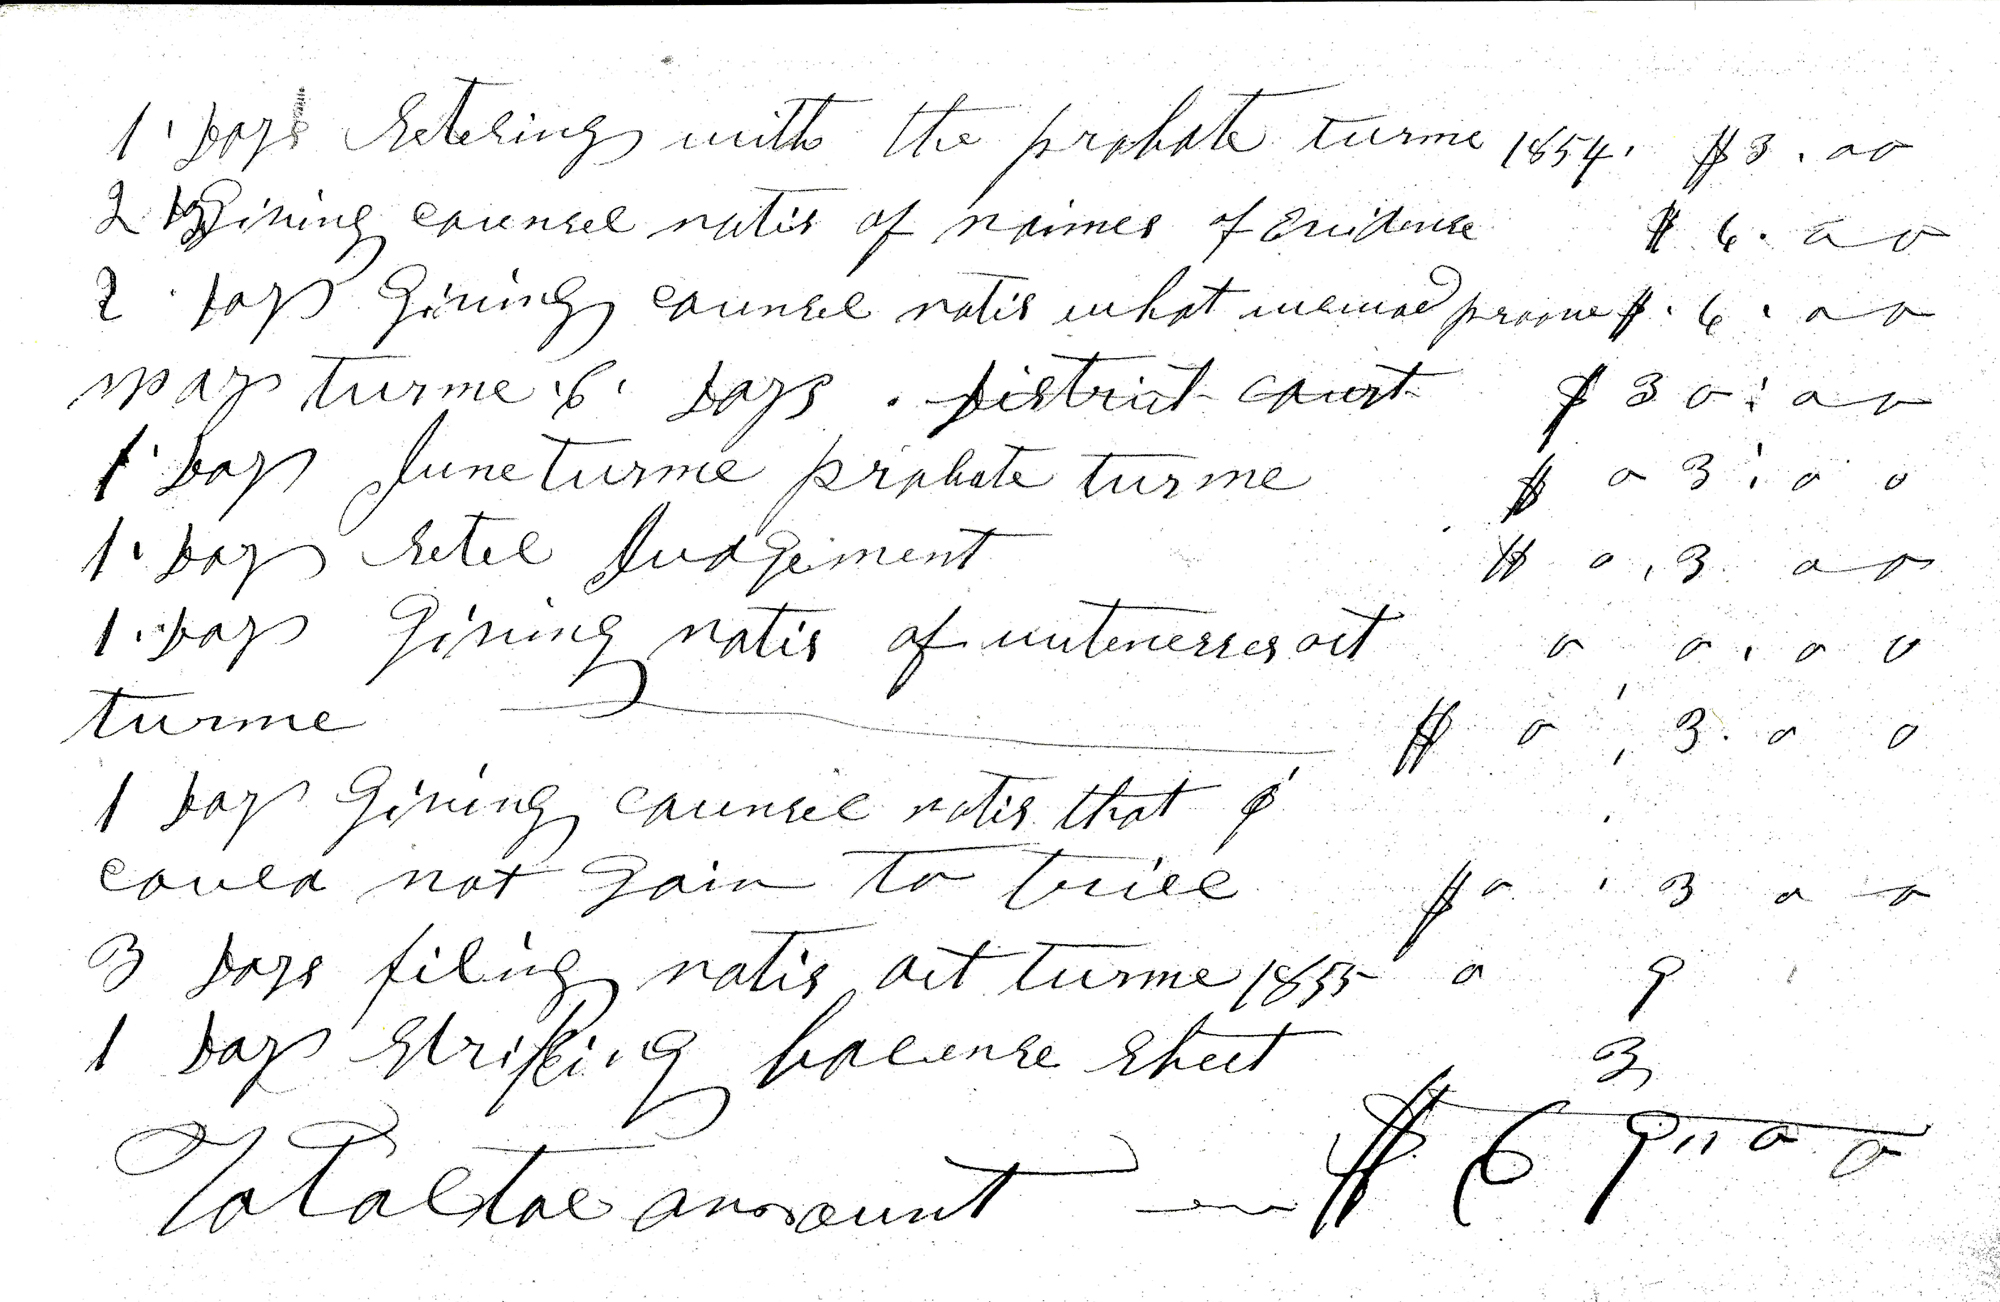 1 . Days Seteling with the probate turme 1854. $ 3 . 00
2 Giving counsel notis of naimes of Evidense $ 6 . 00
2 . Days Giving counsel notis what proove $ . 6 . 00
may turme . 6 . Days . District court $ 30 : 00
1 Days June turme probate turme $ 03 : 00
1 . Days Setel Judgement $ 0 , 3 00
1 . Days Giving notis of wittenesses at 0 0 . 00
turme $ 0 , 3 . 00
1 Days Giving counsel notis that I
could not gain to triel $ 0 . 3 00
3 Days filing notis at turme 1855 0 9
1 Days Striking balense Sheet 3
Total amount $ 69 " 00